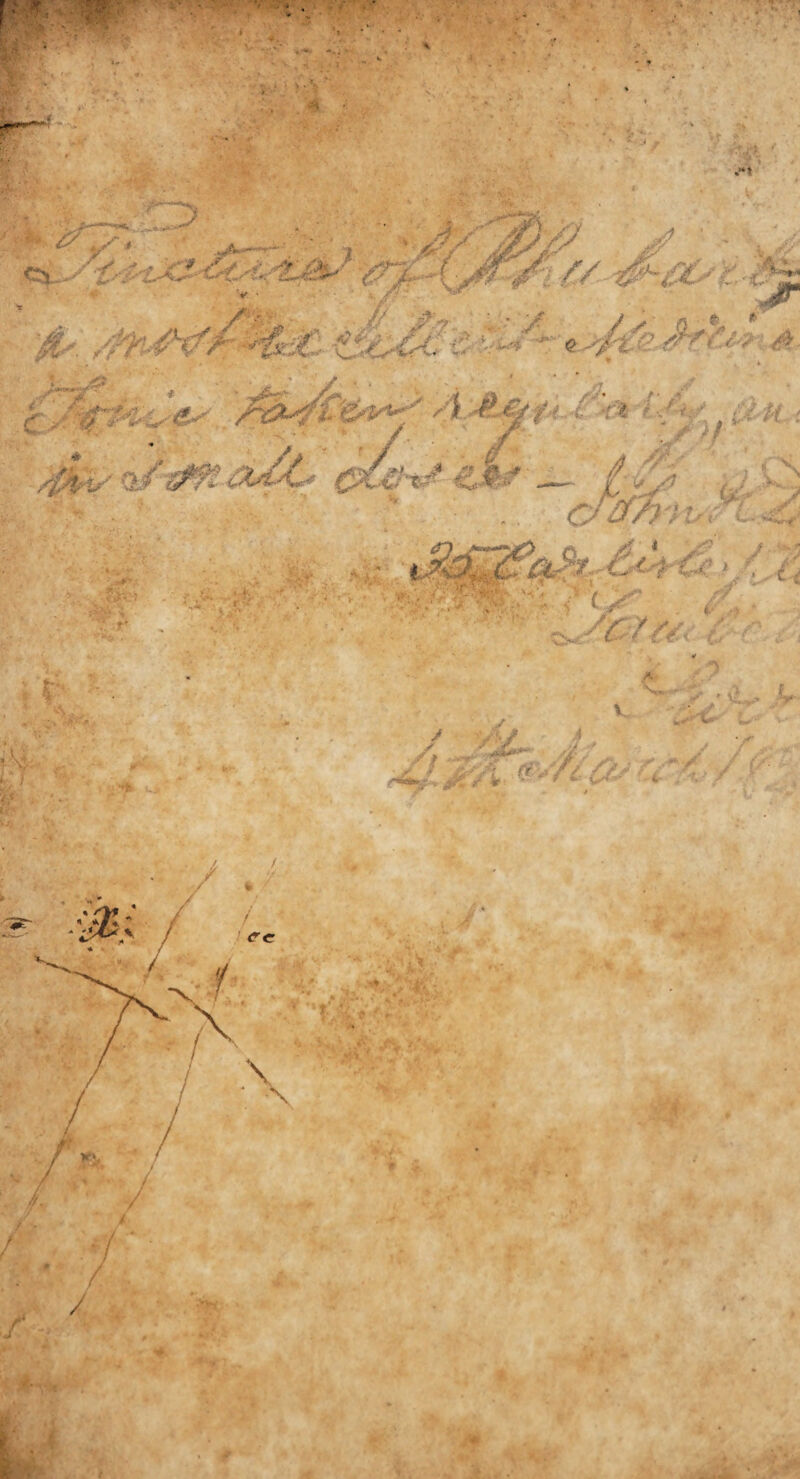 Tincture of Rhubarb
a most Excellent Medicine
Tonic taken regularly, an
in small doses — 
John
35 Carlisle
Lambe
Surr
4th March 18